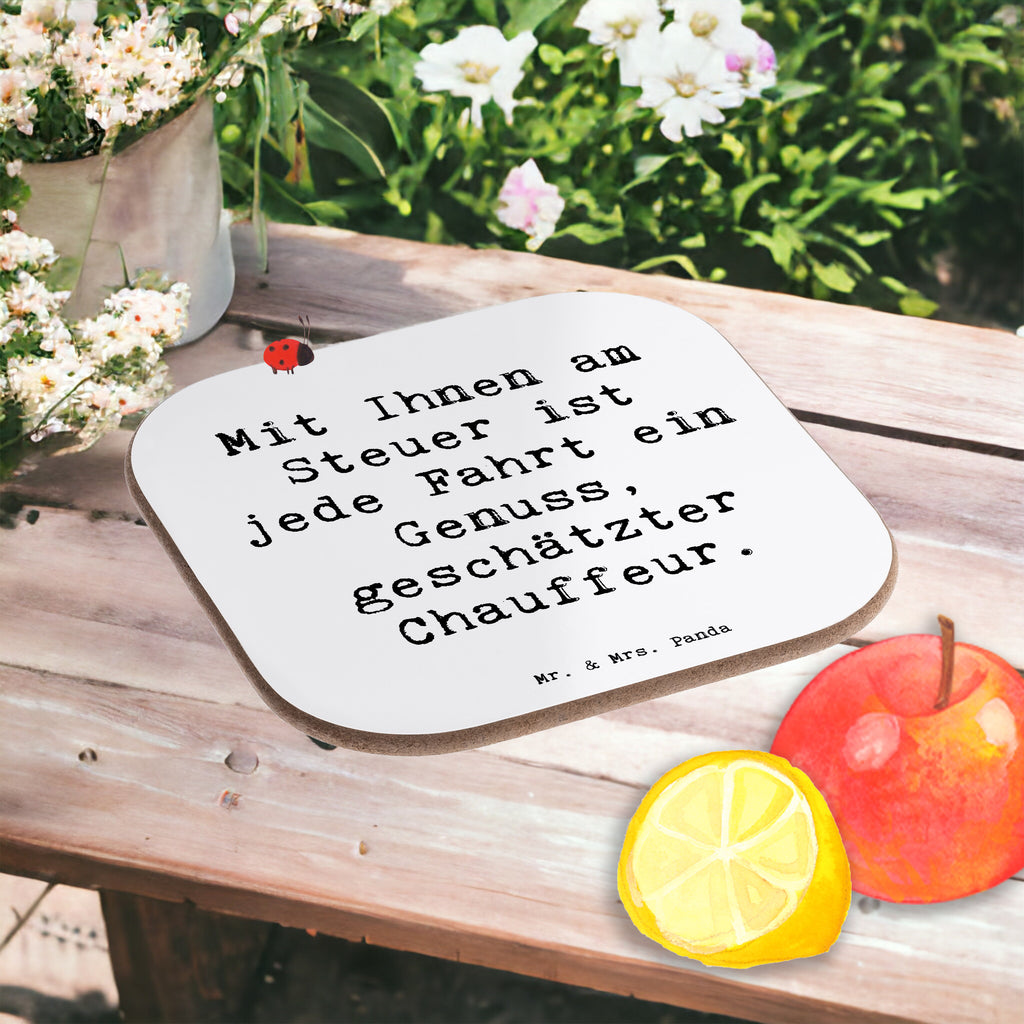 Mit Ihnen am
Steuer ist
jede Fahrt ein
Genuss,
geschätzter
Chauffeur.
Mr. & Mrs. Panda